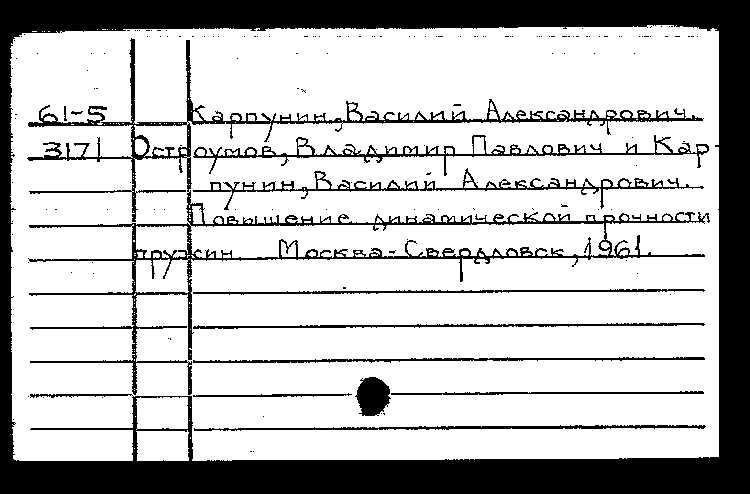 61-5 Карпунин, Василий Александрович.
3171 Остроумов, Владимир Павлович и Кар-
пунин, Василий Александрович.
Повышение динамической прочности
пружин. Москва-Свердловск, 1961.